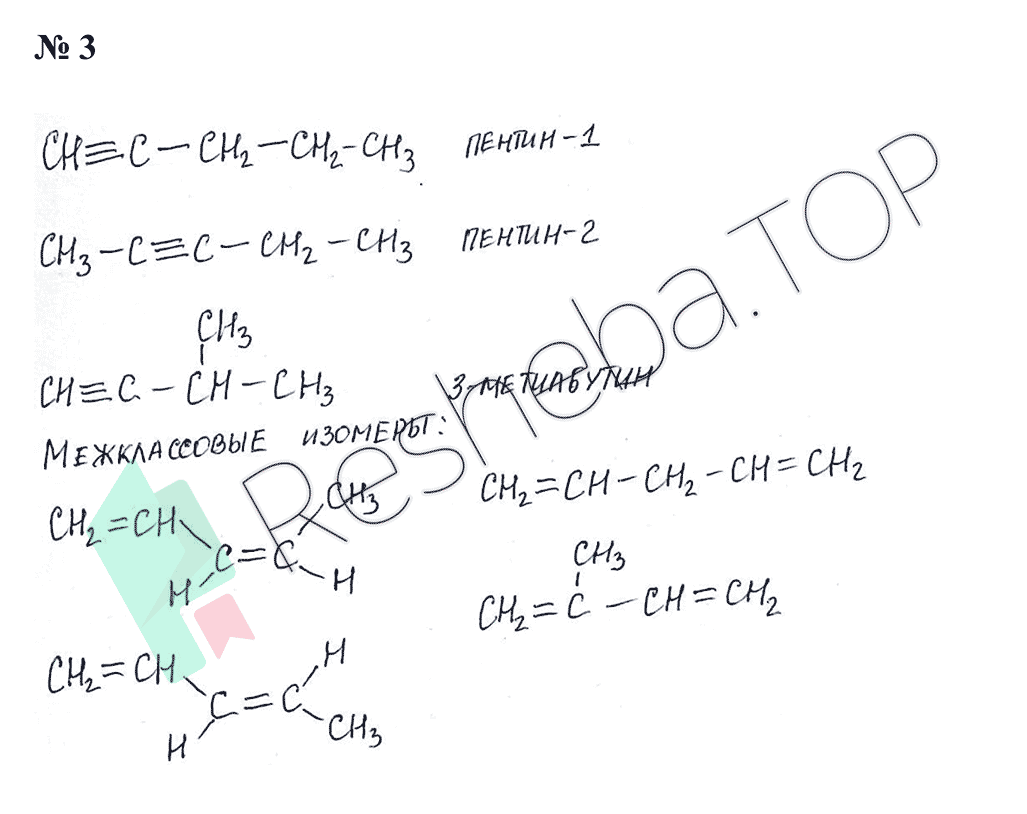 № 3
CH≡C—CH₂—CH₂-CH₃ ПЕНТИН-1
CH₃—C≡C—CH₂—CH₃ ПЕНТИН-2
CH₃
CH≡C—CH—CH₃ 3-МЕТИЛБУТИН
МЕЖКЛАССОВЫЕ ИЗОМЕРЫ:
CH₂=CH
CH₃
C=C
H
H
CH₂=CH—CH₂—CH=CH₂
CH₃
CH₂=C—CH=CH₂
CH₂=CH
H
C=C
H
CH₃
Resheba.TOP